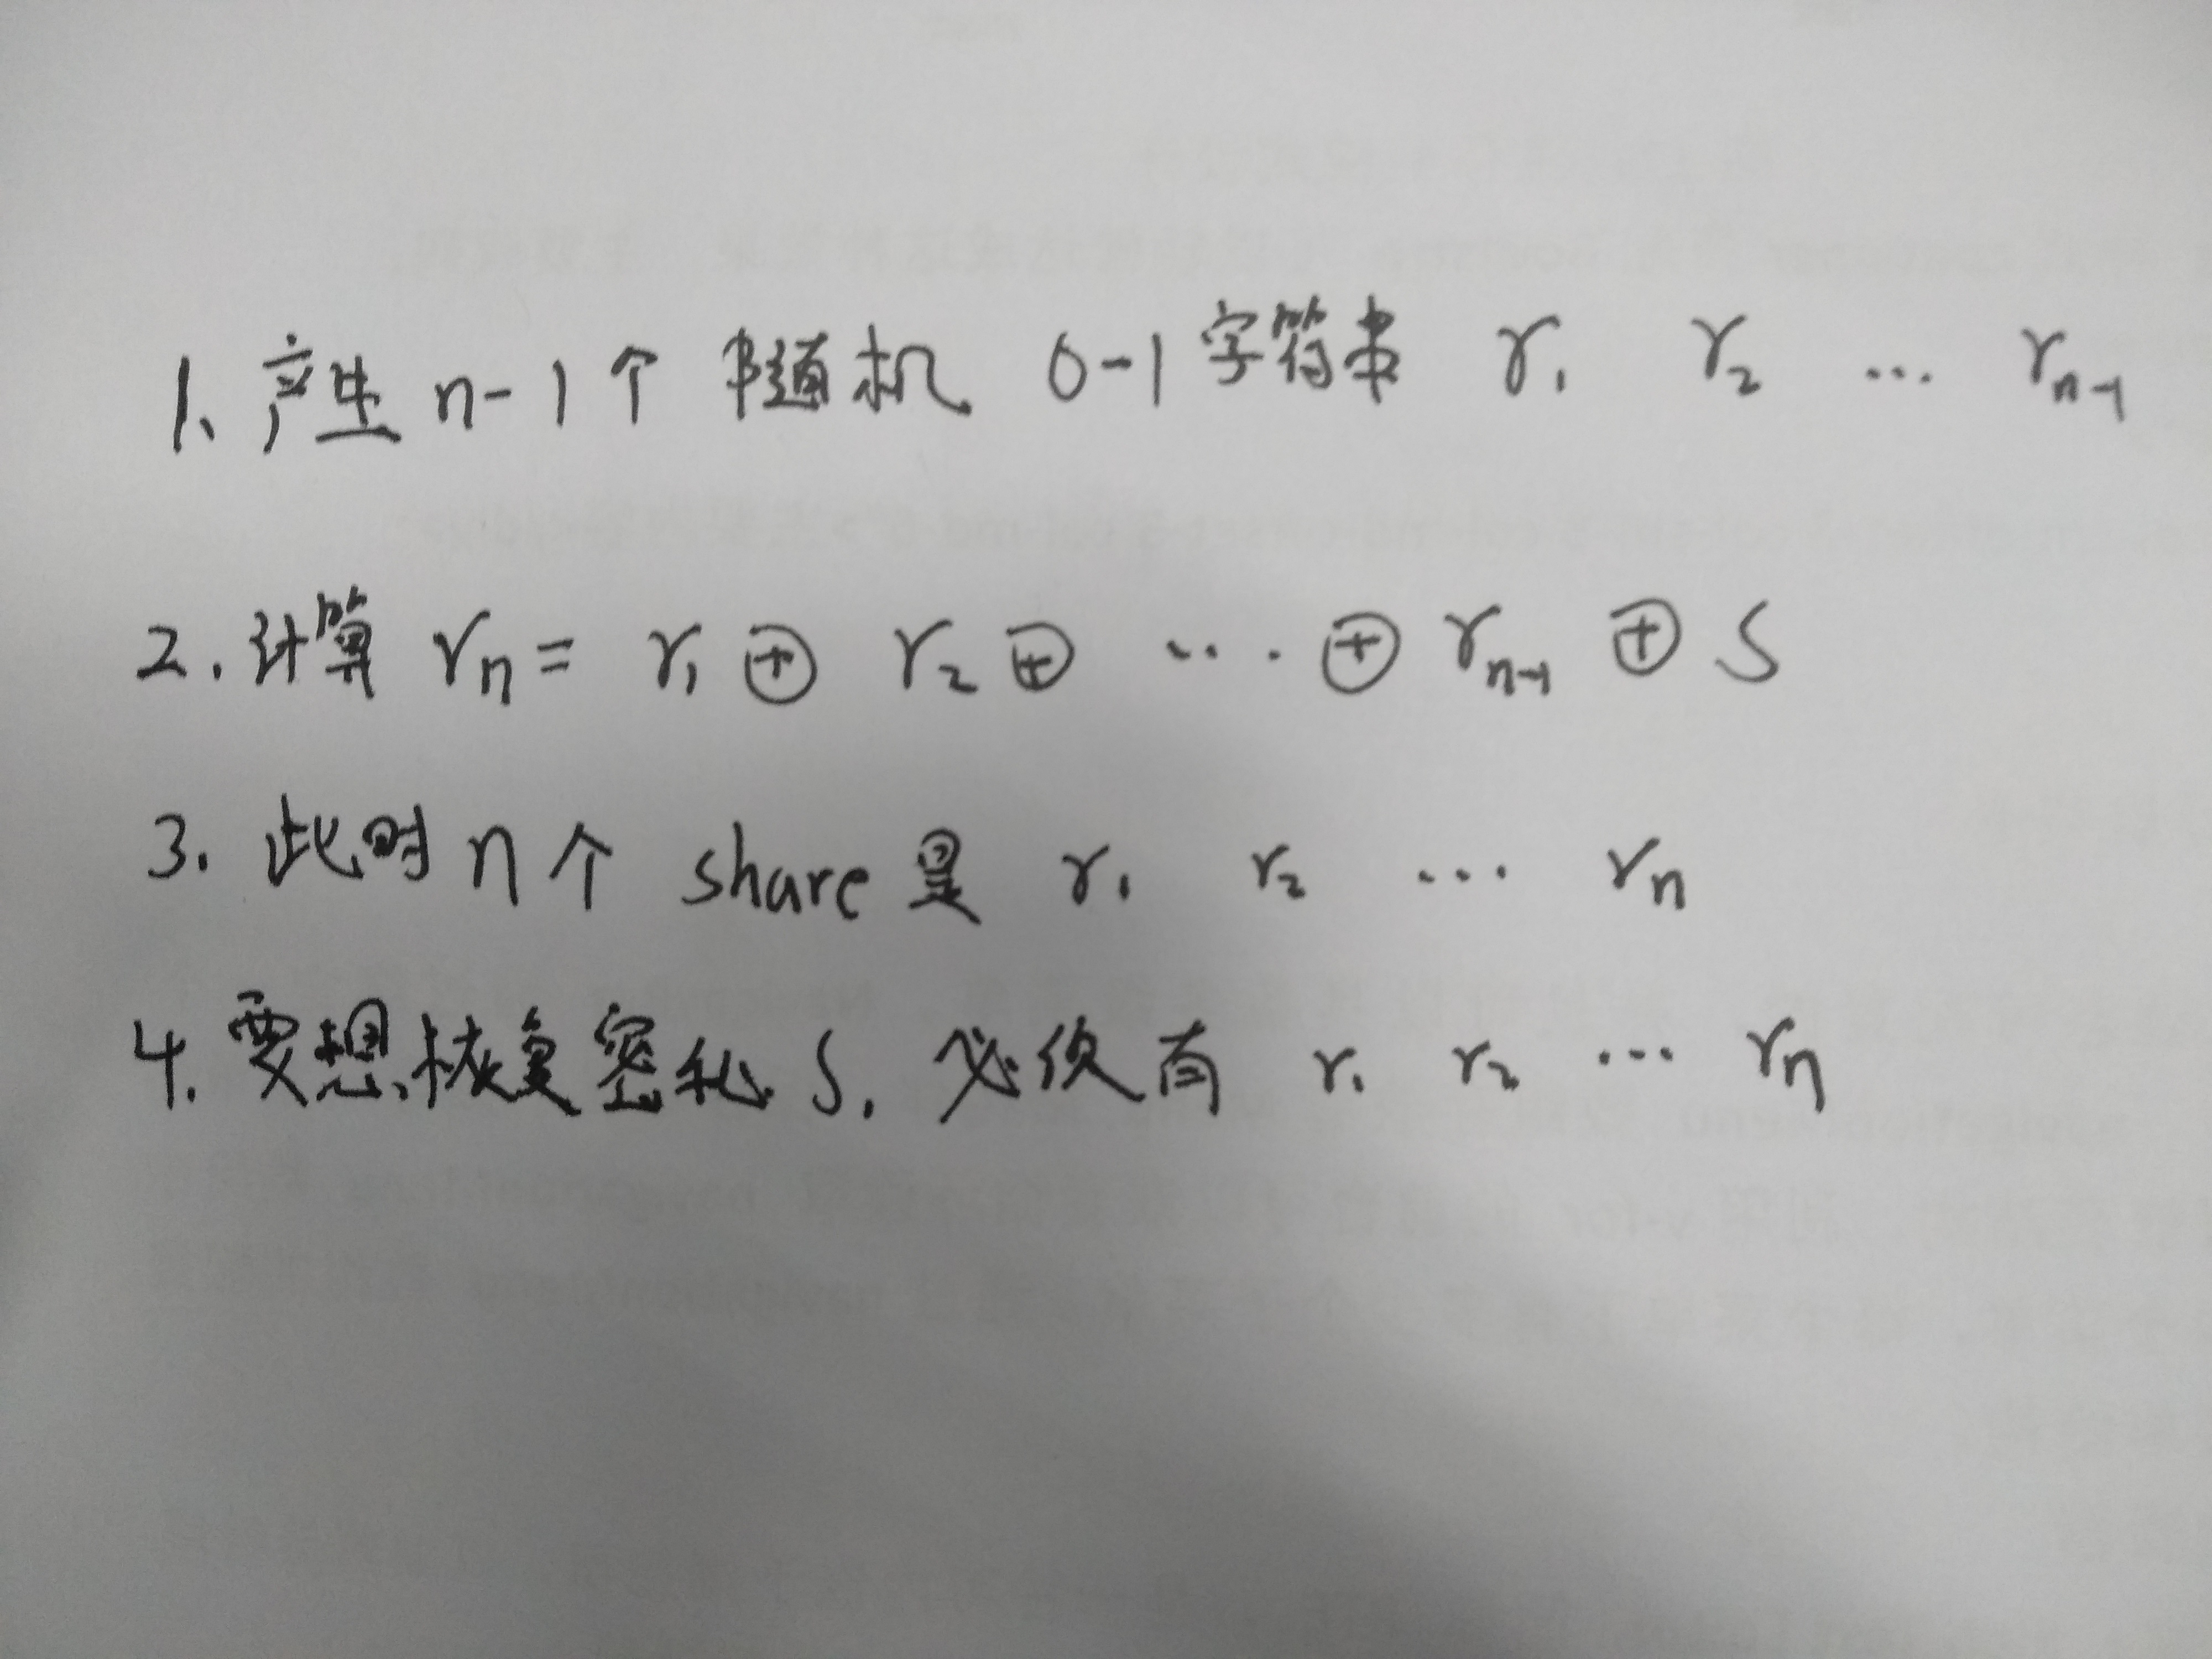 1、产生 n-1个 随机 0-1字符串 r₁ r₂ … rₙ₋₁
2.计算 rₙ= r₁ ⊕ r₂ ⊕ …. ⊕ rₙ₋₁ ⊕ S
3. 此时 n个 share是 r₁ r₂ … rₙ
4.要想恢复密私 S. 必须有 r₁ r₂ … rₙ